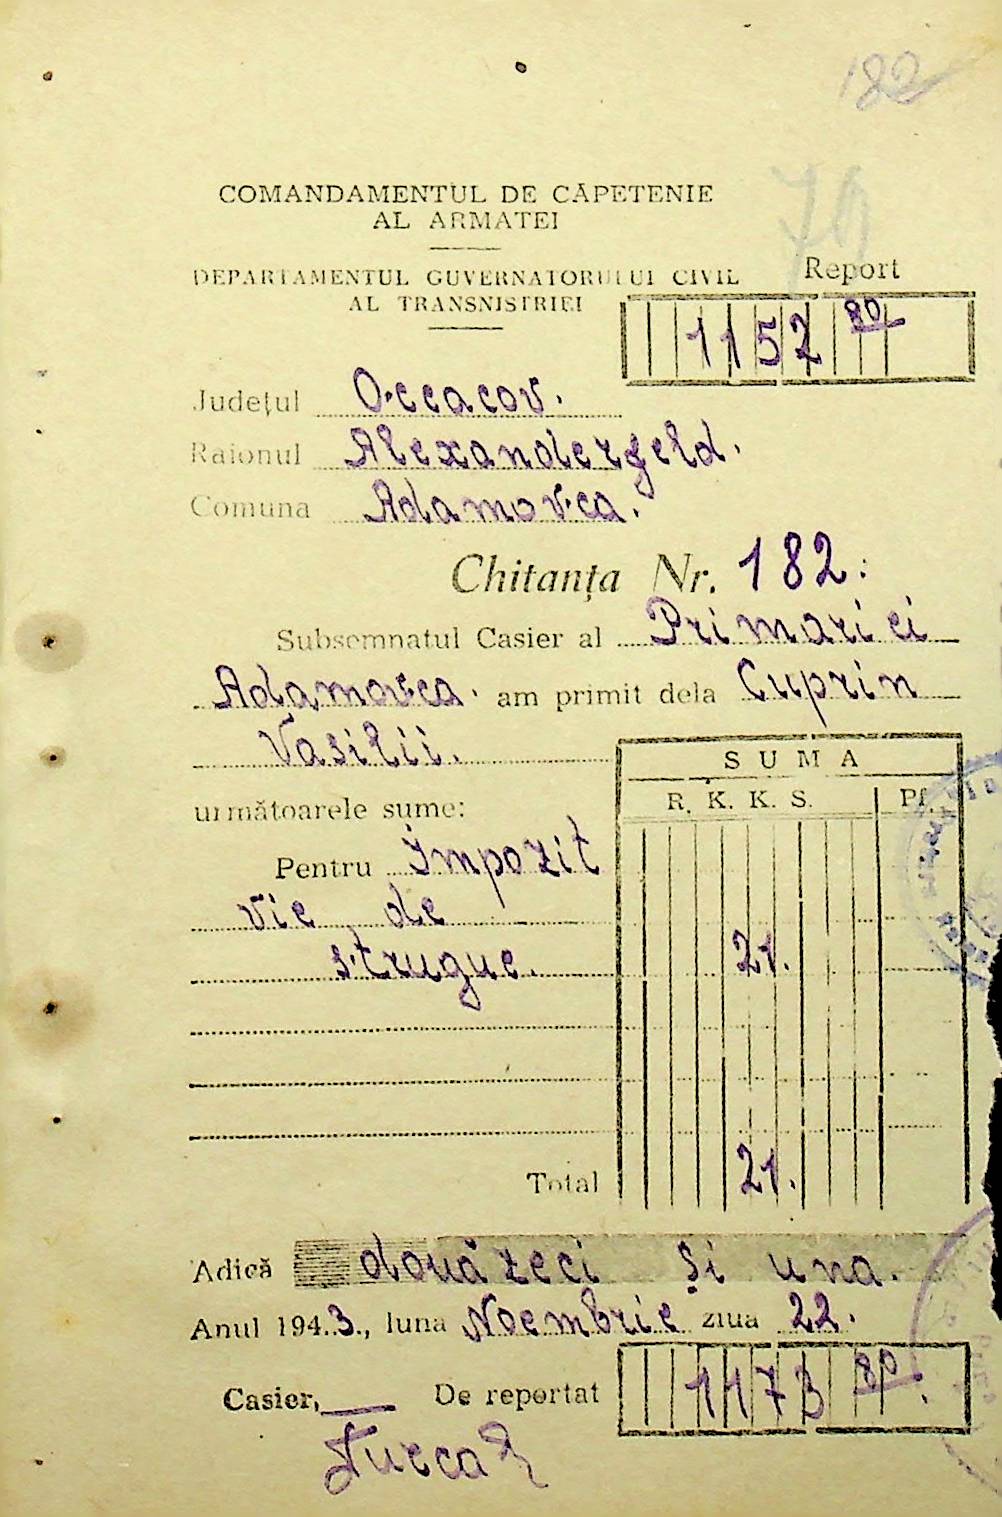 182
79
COMANDAMENTUL DE CĂPETENIE
AL ARMATEI
DEPARTAMENTUL GUVERNATORULUI CIVIL
AL TRANSNISTRIEI
Report
1152 80
Județul Occacov.
Raionul Alexanderfeld.
Comuna Adamovca.
Chitanța Nr. 182.
Subsemnatul Casier al Primariei
Adamovca. am primit dela Cuprin
Vasilii.
SUMA
R. K. K. S. Pf.
următoarele sume:
Pentru Impozit
vie de
strugue. 21.
Total 21.
Adică două zeci și una.
Anul 1943., luna Noembrie ziua 22.
Casier, De reportat 1173 80